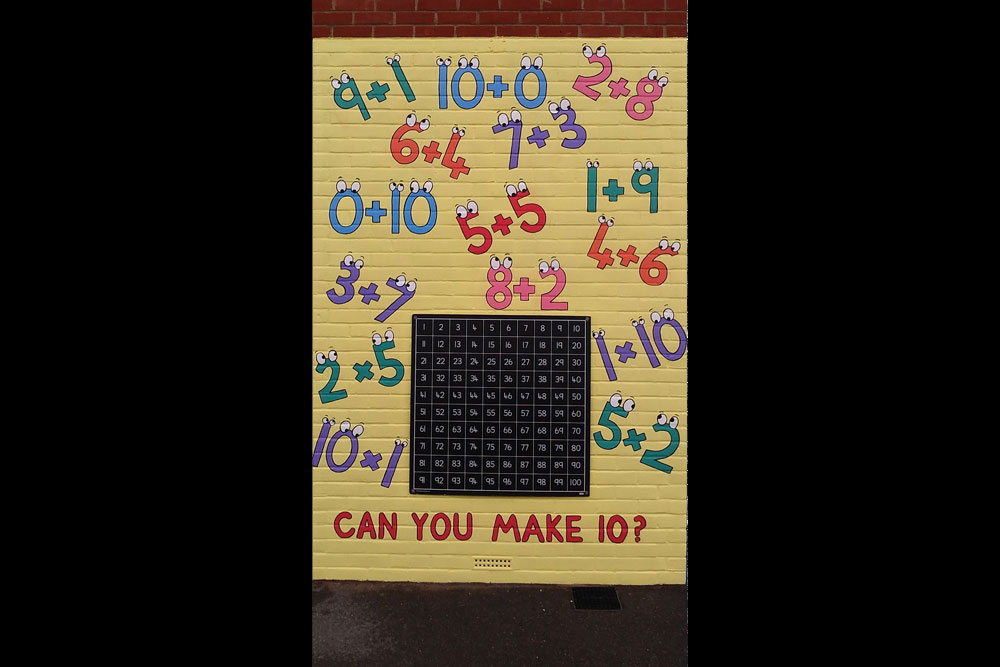 9+1 10+0 2+8
6+4 7+3
0+10 5+5 1+9
4+6
3+7 8+2
2×5 1×10
10×1 5×2
1 2 3 4 5 6 7 8 9 10
11 12 13 14 15 16 17 18 19 20
21 22 23 24 25 26 27 28 29 30
31 32 33 34 35 36 37 38 39 40
41 42 43 44 45 46 47 48 49 50
51 52 53 54 55 56 57 58 59 60
61 62 63 64 65 66 67 68 69 70
71 72 73 74 75 76 77 78 79 80
81 82 83 84 85 86 87 88 89 90
91 92 93 94 95 96 97 98 99 100
CAN YOU MAKE 10?